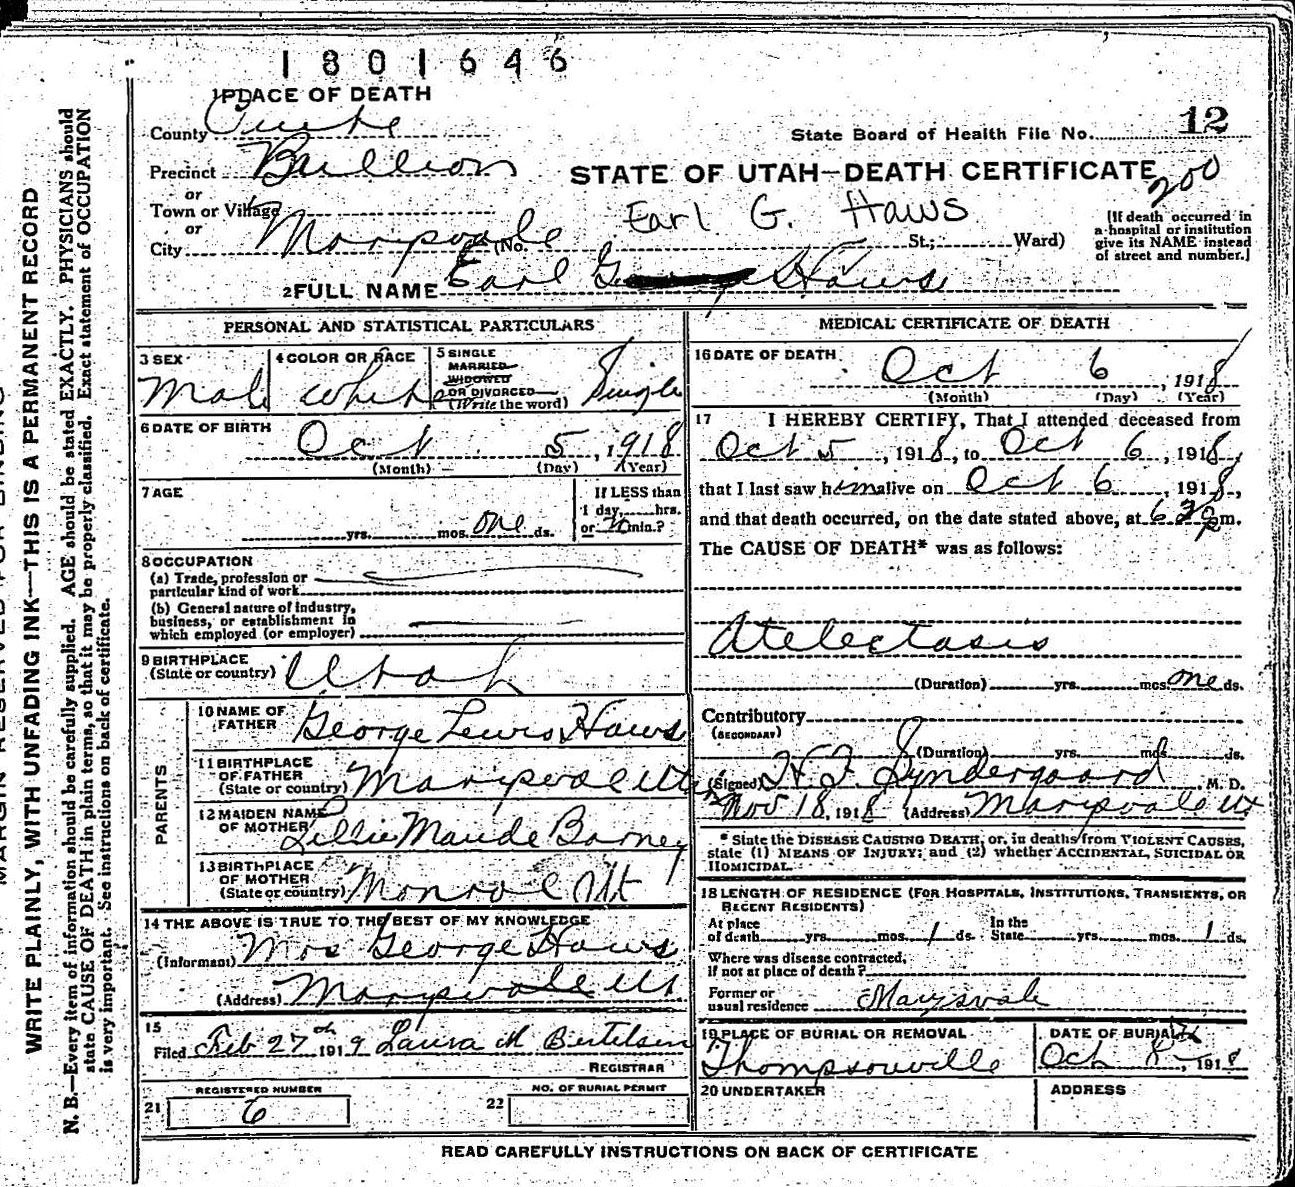 1801646
1 PLACE OF DEATH
County Piute
Precinct Bullion
or
Town or Village
or
City Marysvale (No. St.; Ward)
State Board of Health File No. 12
STATE OF UTAH—DEATH CERTIFICATE
200
Earl G. Haws
(If death occurred in
a hospital or institution
give its NAME instead
of street and number.]
2 FULL NAME Earl G. Haws
PERSONAL AND STATISTICAL PARTICULARS
3 SEX Male
4 COLOR OR RACE white
5 SINGLE
MARRIED
WIDOWED
OR DIVORCED
(Write the word) Single
6 DATE OF BIRTH
Oct 5, 1918
(Month) (Day) (Year)
7 AGE
yrs. mos. one ds.
If LESS than
1 day, hrs.
or min.?
8 OCCUPATION
(a) Trade, profession or
particular kind of work
(b) General nature of industry,
business, or establishment in
which employed (or employer)
9 BIRTHPLACE
(State or country) Utah
PARENTS
10 NAME OF
FATHER George Lewis Haws
11 BIRTHPLACE
OF FATHER
(State or country) Marysvale Utah
12 MAIDEN NAME
OF MOTHER Lillie Maude Barney
13 BIRTHPLACE
OF MOTHER
(State or country) Monroe Ut
14 THE ABOVE IS TRUE TO THE BEST OF MY KNOWLEDGE
(Informant) Mrs George Haws
(Address) Marysvale Ut
15
Filed Feb 27th 1919 Laura M Bertelsen
REGISTRAR
21 REGISTERED NUMBER
6
22 NO. OF BURIAL PERMIT
MEDICAL CERTIFICATE OF DEATH
16 DATE OF DEATH
Oct 6, 1918
(Month) (Day) (Year)
17 I HEREBY CERTIFY, That I attended deceased from
Oct 5, 1918, to Oct 6, 1918,
that I last saw him alive on Oct 6, 1918,
and that death occurred, on the date stated above, at 630 p m.
The CAUSE OF DEATH* was as follows:
Atelectasis
(Duration) yrs. mos. one ds.
Contributory
(SECONDARY)
(Duration) yrs. mos. ds.
(Signed) H. F. Syndergaard M. D.
Nov 18, 1918 (Address) Marysvale Ut
* State the DISEASE CAUSING DEATH, or, in deaths from VIOLENT CAUSES,
state (1) MEANS OF INJURY; and (2) whether ACCIDENTAL, SUICIDAL OR
HOMICIDAL.
18 LENGTH OF RESIDENCE (FOR HOSPITALS, INSTITUTIONS, TRANSIENTS, OR
RECENT RESIDENTS)
At place
of death yrs. mos. 1 ds.
In the
State yrs. mos. 1 ds.
Where was disease contracted,
if not at place of death?
Former or
usual residence Marysvale
19 PLACE OF BURIAL OR REMOVAL
Thompsonville
DATE OF BURIAL
Oct 8, 1918
20 UNDERTAKER
ADDRESS
READ CAREFULLY INSTRUCTIONS ON BACK OF CERTIFICATE
WRITE PLAINLY, WITH UNFADING INK—THIS IS A PERMANENT RECORD
N. B.—Every item of information should be carefully supplied. AGE should be stated EXACTLY. PHYSICIANS should
state CAUSE OF DEATH in plain terms, so that it may be properly classified. Exact statement of OCCUPATION
is very important. See instructions on back of certificate.